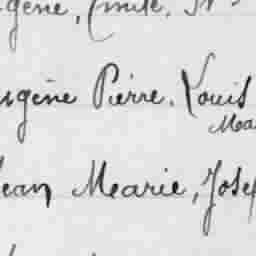 gène, Emile, 
ugène Pierre. Louis
Ma
Jean Marie, Jose